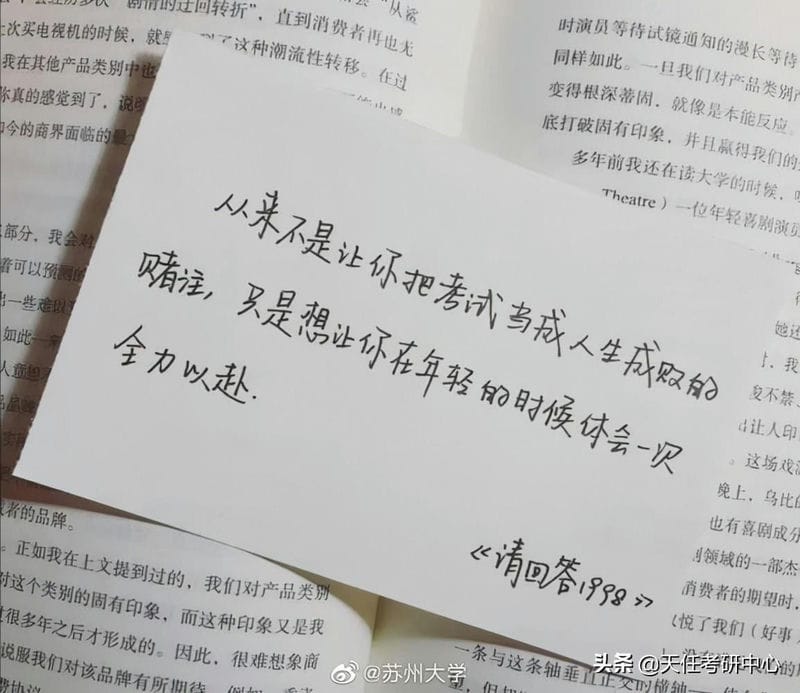 剧情的迂回转折”，直到消费者再也无
次买电视机的时候，就
了这种潮流性转移。在过
我在其他产品类别中也
你真的感觉到了，说明
如今的商界面临的最
时演员等待试镜通知的漫长等待
同样如此。一旦我们对产品类别
变得根深蒂固，就像是本能反应。
底打破固有印象，并且赢得我们的
多年前我还在读大学的时候，
Theatre）一位年轻喜剧演员
从来不是让你把考试当成人生成败的
赌注，只是想让你在年轻的时候体会一次
全力以赴.
《请回答1998》
部分，我会对
着可以预测的
出一些难以
如此一来
，我
俊不禁、
出让人印
。这场戏
晚上，乌比的
也有喜剧成分
别领域的一部杰
消费者的期望时，
悦了我们（好事
者的品牌。
。正如我在上文提到过的，我们对产品类别
对这个类别的固有印象，而这种印象又是我
很多年之后才形成的。因此，很难想象商
说服我们对该品牌有所期待。
一条与这条轴垂直正交的横轴
@苏州大学
头条 @天任考研中心